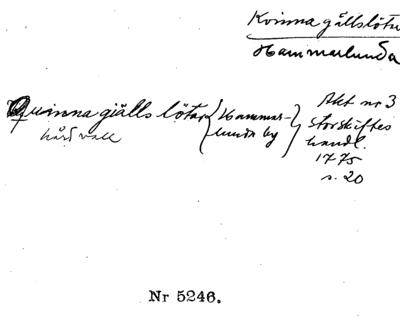 Kvinna gällslötar
Hammarlunda
Quinna giälls lötar
hård vall
Hammar-
lunda by
Akt nr 3
Storskiftes
handl.
1775
s. 20
Nr 5246.